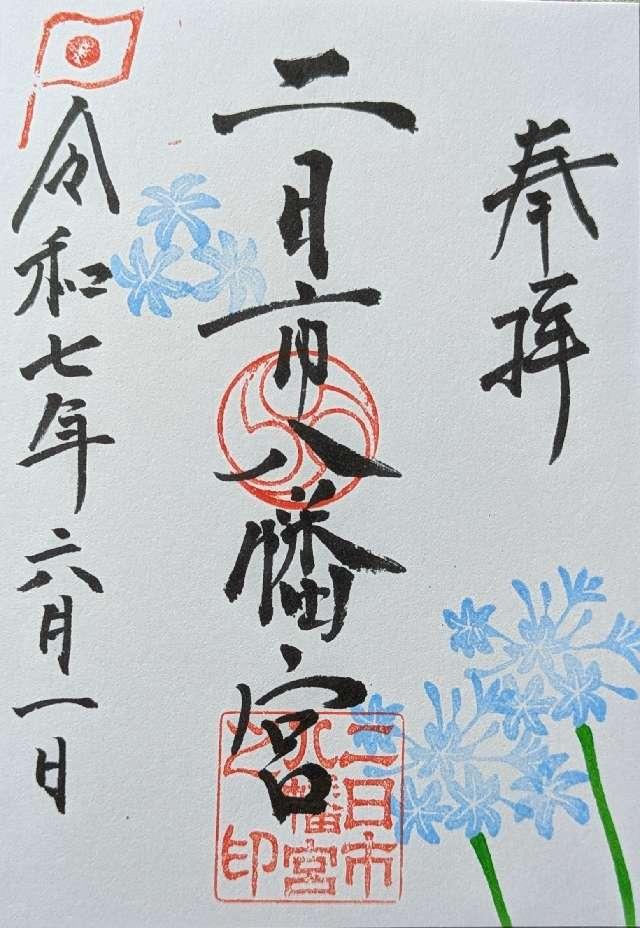 奉拝
二日市八幡宮
二日市
八幡宮
之印
令和七年六月一日